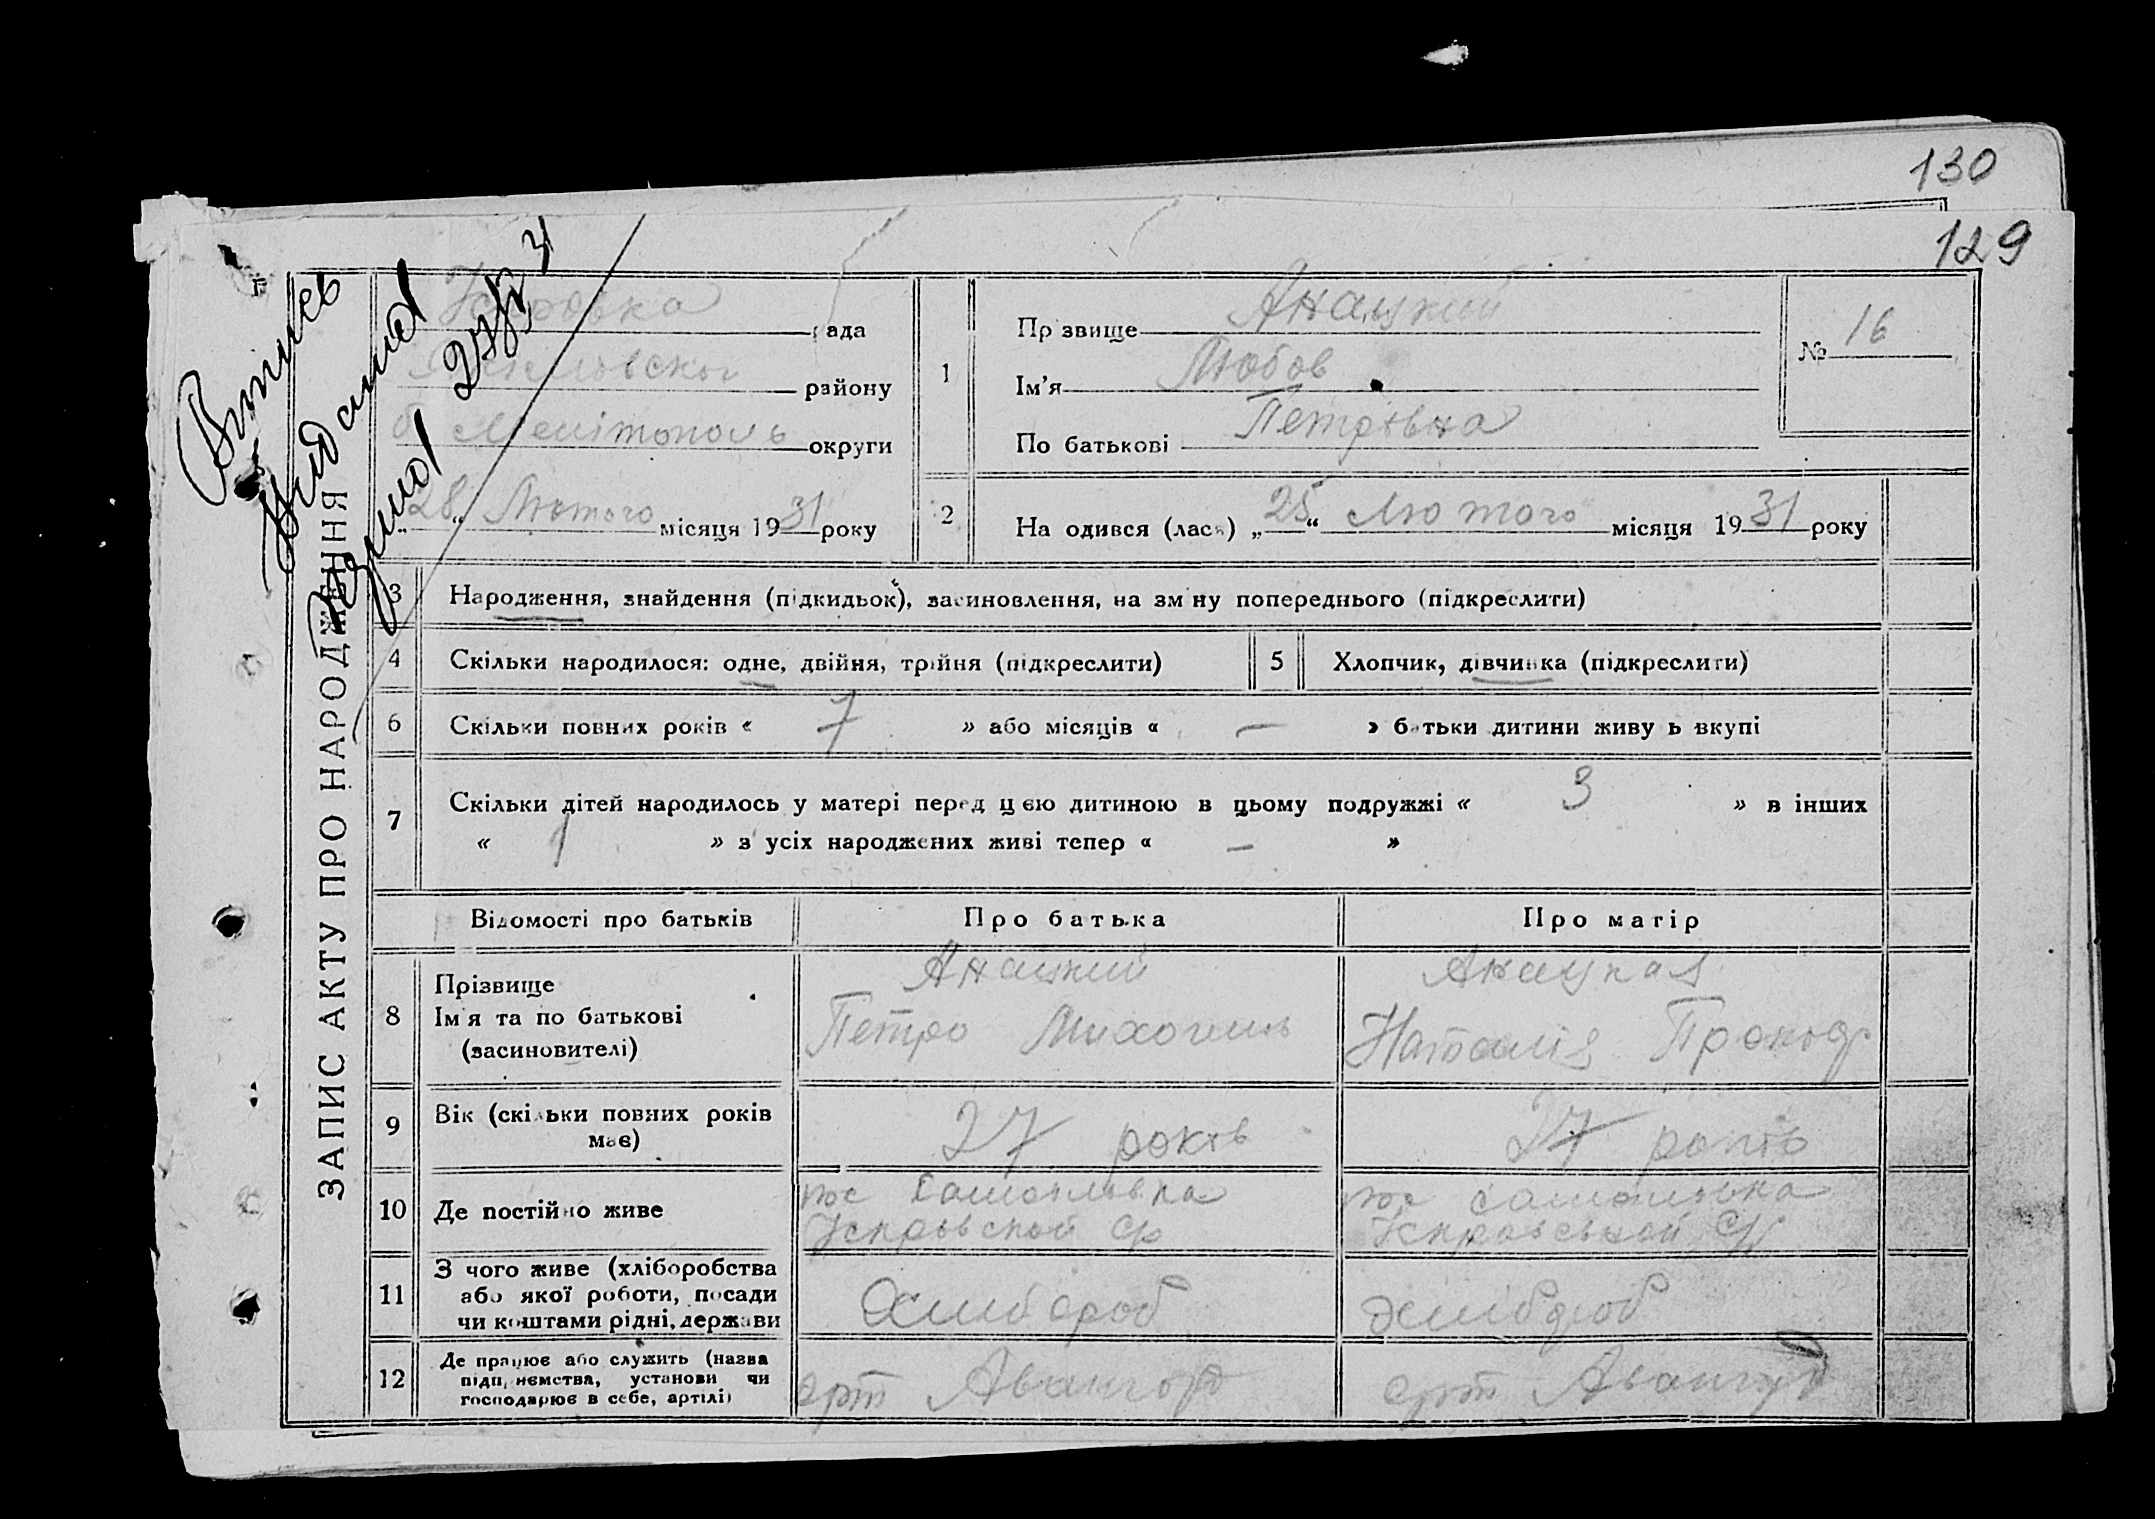 130
129
Виписъ
Видана
28/II 31
ЗАПИС АКТУ ПРО НАРОДЖЕННЯ
рада
району
Мелітополь округи
„28“ Лютого місяця 1931 року
1
Прізвище Анацкий
Ім'я Любов
По батькові Петрівна
№ 16
2
Народився (лася) „25“ Лютого місяця 1931 року
3 Народження, знайдення (підкидьок), засиновлення, на зміну попереднього (підкреслити)
4 Скільки народилося: одне, двійня, трійня (підкреслити) 5 Хлопчик, дівчинка (підкреслити)
6 Скільки повних років « 7 » або місяців « — » батьки дитини живуть вкупі
7 Скільки дітей народилось у матері перед цією дитиною в цьому подружжі « 3 » в інших
« 1 » з усіх народжених живі тепер « — »
Відомості про батьків Про батька Про матір
8 Прізвище Анацкий Анацкая
Ім'я та по батькові Петро Наталія Прокоф
(засиновителі)
9 Вік (скільки повних років 27 років 27 років
має)
10 Де постійно живе пос Самойлівка пос Самойлівка
11 З чого живе (хліборобства
або якої роботи, посади Хлібороб Хлібороб
чи коштами рідні, держави
12 Де працює або служить (назва
підприємства, установи чи арт Авангард арт Авангард
господарює в себе, артілі)